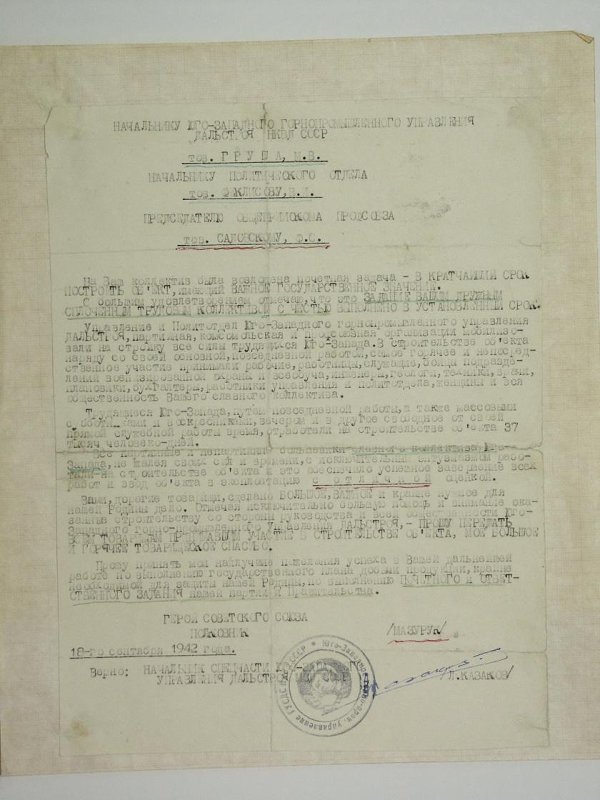 НАЧАЛЬНИКУ ЮГО-ЗАПАДНОГО ГОРНОПРОМЫШЛЕННОГО УПРАВЛЕНИЯ
ДАЛЬСТРОЯ НКВД СССР
тов. ГРУША, М.В.
НАЧАЛЬНИКУ ПОЛИТИЧЕСКОГО ОТДЕЛА
тов.
ПРЕДСЕДАТЕЛЮ ПРОФСОЮЗА
тов. САДОВСКОМУ,
На Ваш коллектив была возложена почетная задача - В КРАТЧАЙШИЙ СРОК
ПОСТРОИТЬ ОБ'ЕКТ, ИМЕЮЩИЙ ВАЖНОЕ ГОСУДАРСТВЕННОЕ ЗНАЧЕНИЕ.
С большим удовлетворением отмечаю, что это ЗАДАНИЕ ВАШИМ ДРУЖНЫМ
СПЛОЧЕННЫМ ТРУДОВЫМ КОЛЛЕКТИВОМ С ЧЕСТЬЮ ВЫПОЛНЕНО В УСТАНОВЛЕННЫЙ СРОК.
Управление и Политотдел Юго-Западного горнопромышленного управления
ДАЛЬСТРОЯ, партийная, комсомольская и профсоюзная организации мобилизо-
вали на стройку все силы трудящихся Юго-Запада. В строительстве об'екта
наряду со своей основной, повседневной работой, самое горячее и непосред-
ственное участие принимали рабочие, работницы, служащие, бойцы подразде-
лений военизированной охраны и всеобуча, инженеры, геологи, техники, врачи,
плановики, бухгалтера, работники управления и политотдела, женщины и вся
общественность Вашего славного коллектива.
Трудящиеся Юго-Запада, путем повседневной работы, а также массовыми
субботниками и воскресниками, вечером и в другое свободное от своей
прямой служебной работы время, отработали на строительстве об'екта 37
тысяч человеко-дней.
Все партийные и непартийные большевики славного коллектива Юго-
Запада, не жалея своих сил и времени, с исключительным
строительстве об'екта и это обеспечило успешное завершение всех
работ и ввод об'екта в эксплоатацию с отличной оценкой.
Вами, дорогие товарищи, сделано БОЛЬШОЕ, ВАЖНОЕ и крайне нужное для
нашей Родины дело. Отмечая исключительно большую помощь и внимание ока-
занные строительству со стороны руководства и всей общественности Юго-
Западного горнопромышленного Управления ДАЛЬСТРОЯ, - ПРОШУ ПЕРЕДАТЬ
ВСЕМ ТОВАРИЩАМ ПРИНИМАВШИМ УЧАСТИЕ В СТРОИТЕЛЬСТВЕ ОБ'ЕКТА, МОЕ БОЛЬШОЕ
И ГОРЯЧЕЕ ТОВАРИЩЕСКОЕ СПАСИБО.
Прошу принять мои наилучшие пожелания успеха в Вашей дальнейшей
работе по выполнению государственного плана добычи продукции, крайне
необходимой для защиты нашей Родины, по выполнению ПОЧЕТНОГО И ОТВЕТ-
СТВЕННОГО ЗАДАНИЯ нашей партии и Правительства.
ГЕРОЙ СОВЕТСКОГО СОЮЗА
ПОЛКОВНИК /МАЗУРУК/.
18-го сентября 1942 года.
Верно: НАЧАЛЬНИК СПЕЦЧАСТИ
УПРАВЛЕНИЯ ДАЛЬСТРОЯ НКВД СССР КАЗАКОВ/